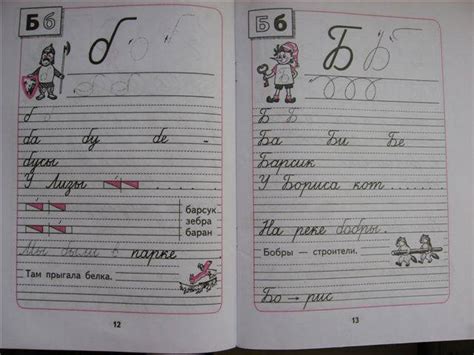 Б б
б б б
б
ба бу бе
бусы
У Лизы
барсук
зебра
баран
Мы были в парке
Там прыгала белка.
12
Б б
Б Б
Б Б
Ба Би Бе
Барсик
У Бориса кот . . . . . . .
На реке бобры.
Бобры — строители.
Бо → рис
13